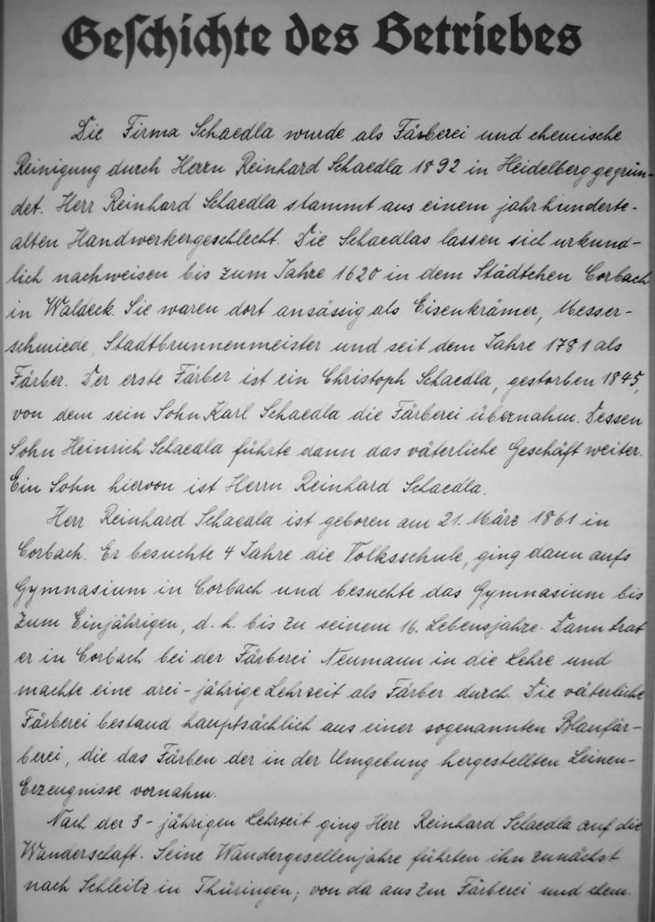 Geschichte des Betriebes
Die Firma Schaedla wurde als Färberei und chemische
Reinigung durch Herrn Reinhard Schaedla 1892 in Heidelberg gegrün-
det. Herr Reinhard Schaedla stammt aus einem jahrhunderte-
alten Handwerkergeschlecht. Die Schaedlas lassen sich urkund-
lich nachweisen bis zum Jahre 1620 in dem Städtchen Corbach
in Waldeck. Sie waren dort ansässig als Eisenkrämer, Messer-
schmiede, Stadtbrunnenmeister und seit dem Jahre 1781 als
Färber. Der erste Färber ist ein Christoph Schaedla, gestorben 1845,
von dem sein Sohn Karl Schaedla die Färberei übernahm. Dessen
Sohn Heinrich Schaedla führte dann das väterliche Geschäft weiter.
Ein Sohn hiervon ist Herrn Reinhard Schaedla.
Herr Reinhard Schaedla ist geboren am 21. März 1861 in
Corbach. Er besuchte 4 Jahre die Volksschule, ging dann aufs
Gymnasium in Corbach und besuchte das Gymnasium bis
zum Einjährigen, d. h. bis zu seinem 16. Lebensjahre. Dann trat
er in Corbach bei der Färberei Neumann in die Lehre und
machte eine drei-jährige Lehrzeit als Färber durch. Die väterliche
Färberei bestand hauptsächlich aus einer sogenannten Blaufär-
berei, die das Färben der in der Umgebung hergestellten Leinen-
Erzeugnisse vornahm.
Nach der 3-jährigen Lehrzeit ging Herr Reinhard Schaedla auf die
Wanderschaft. Seine Wandergesellenjahre führten ihn zunächst
nach Schleitz in Thüringen; von da aus zur Färberei und chem.